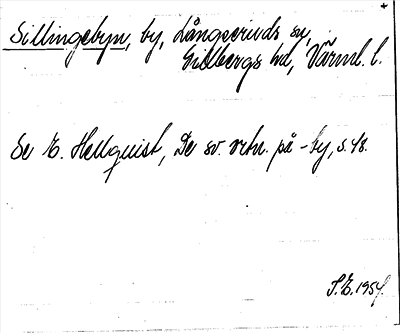 Sillingebyn, by, Långseruds sn,
Gillbergs hd, Värml. l.
Se E. Hellquist, De sv. ortn. på -by, s. 48.
S.E. 1954.